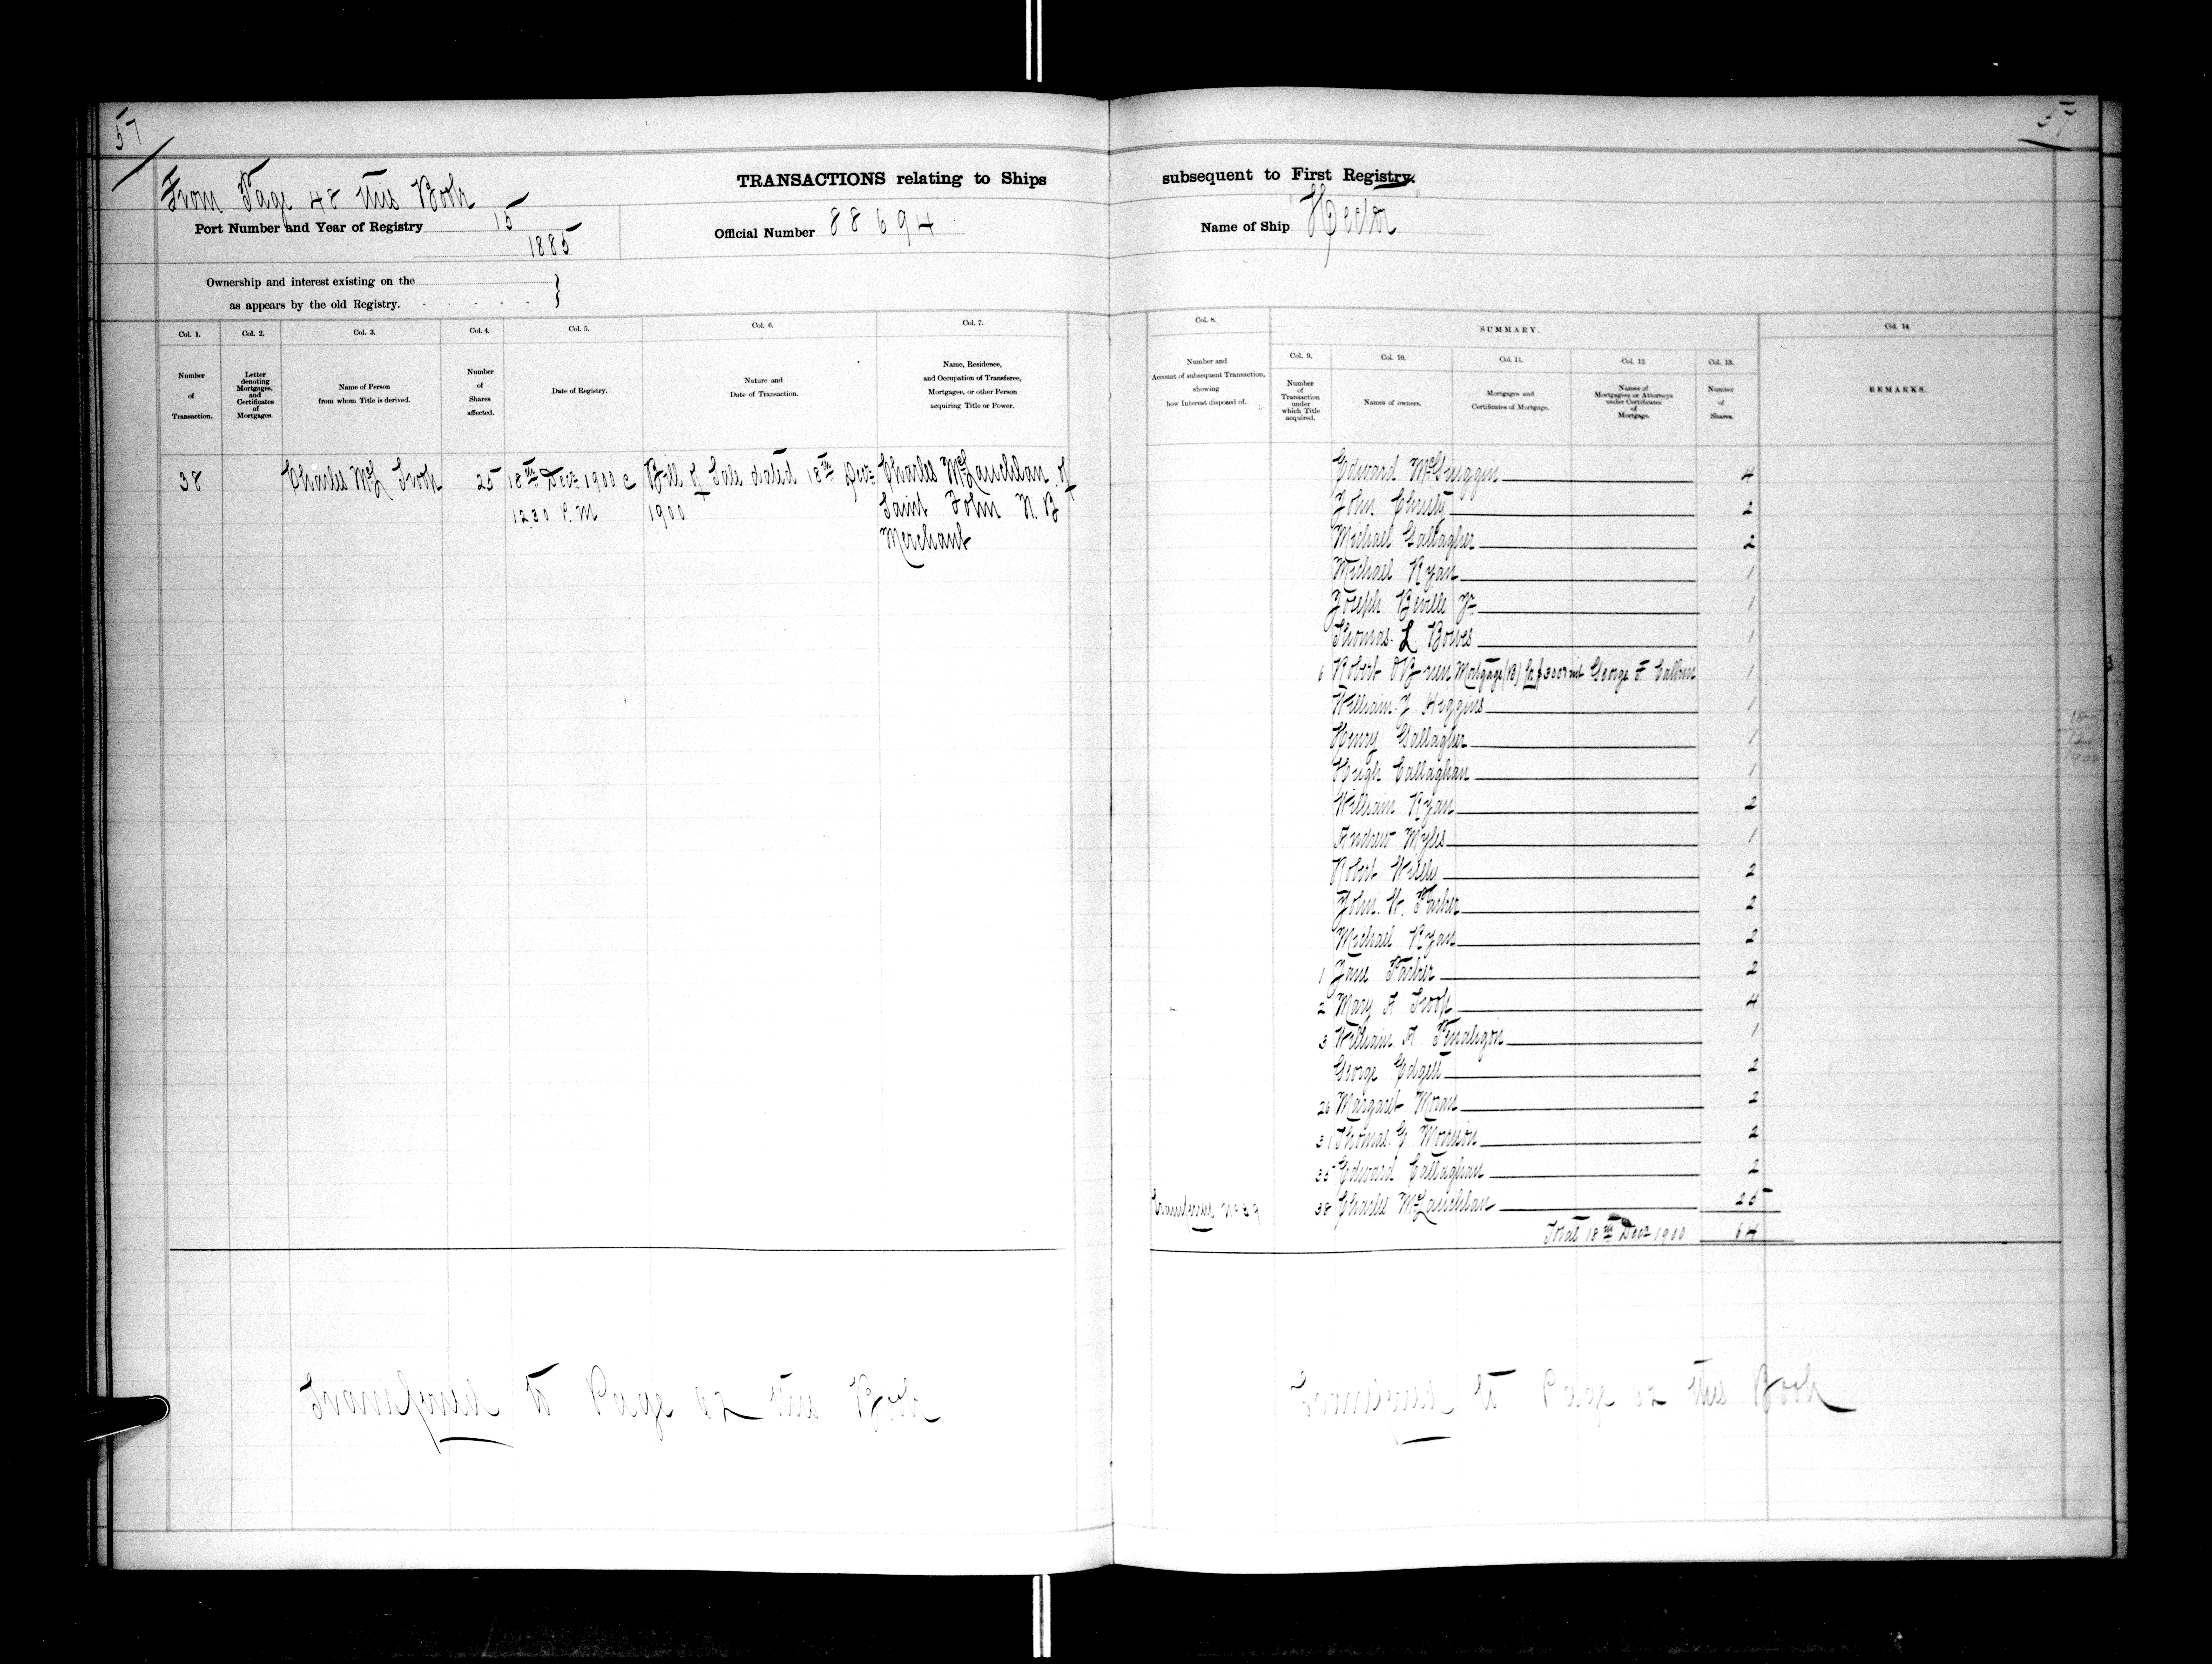 57
57
TRANSACTIONS relating to Ships subsequent to First Registry.
From Page 48 this Book
Port Number and Year of Registry 15
1885
Official Number 88694
Name of Ship "Hector"
Ownership and interest existing on the
as appears by the old Registry.
Col. 1.
Number
of
Transaction.
Col. 2.
Letter
denoting
Mortgages,
and
Certificates
of
Mortgages.
Col. 3.
Name of Person
from whom Title is derived.
Col. 4.
Number
of
Shares
affected.
Col. 5.
Date of Registry.
Col. 6.
Nature and
Date of Transaction.
Col. 7.
Name, Residence,
and Occupation of Transferee,
Mortgagee, or other Person
acquiring Title or Power.
Col. 8.
Number and
Account of subsequent Transaction,
showing
how Interest disposed of.
SUMMARY.
Col. 9.
Number
of
Transaction
under
which Title
acquired.
Col. 10.
Names of owners.
Col. 11.
Mortgages and
Certificates of Mortgage.
Col. 12.
Names of
Mortgagees or Attorneys
under Certificates
of
Mortgage.
Col. 13.
Number
of
Shares.
Col. 14.
REMARKS.
38 Charles McL Troop 25 18th Decr 1900 @ Bill of Sale dated 18th Decr Charles McLauchlan of
12.30 P.M 1900 Saint John N.B
Merchant
Edward McGuiggin 4
John Christy 2
Michael Gallagher 2
Michael Ryan 1
Joseph Beville Jr 1
Thomas L Bowes 1
6 Robert OBrien Mortgage (B) for $300 int George F Calkin 1
William J Higgins 1
Henry Gallagher 1
Hugh Callaghan 1
William Ryan 2
Andrew Myles 1
Robert Wiley 2
John W. Parker 2
Michael Ryan 2
1 Jane Parker 2
2 Mary A Troop 4
3 William A Penaligon 1
George Edgett 2
26 Margaret Moran 2
31 Thomas G Morrison 2
35 Edward Callaghan 2
Transferred No 39 38 Charles McLauchlan 25
Total 18th Decr 1900 64
18
12
1900
Transferred to Page 62 this Book
Transferred to Page 62 this Book